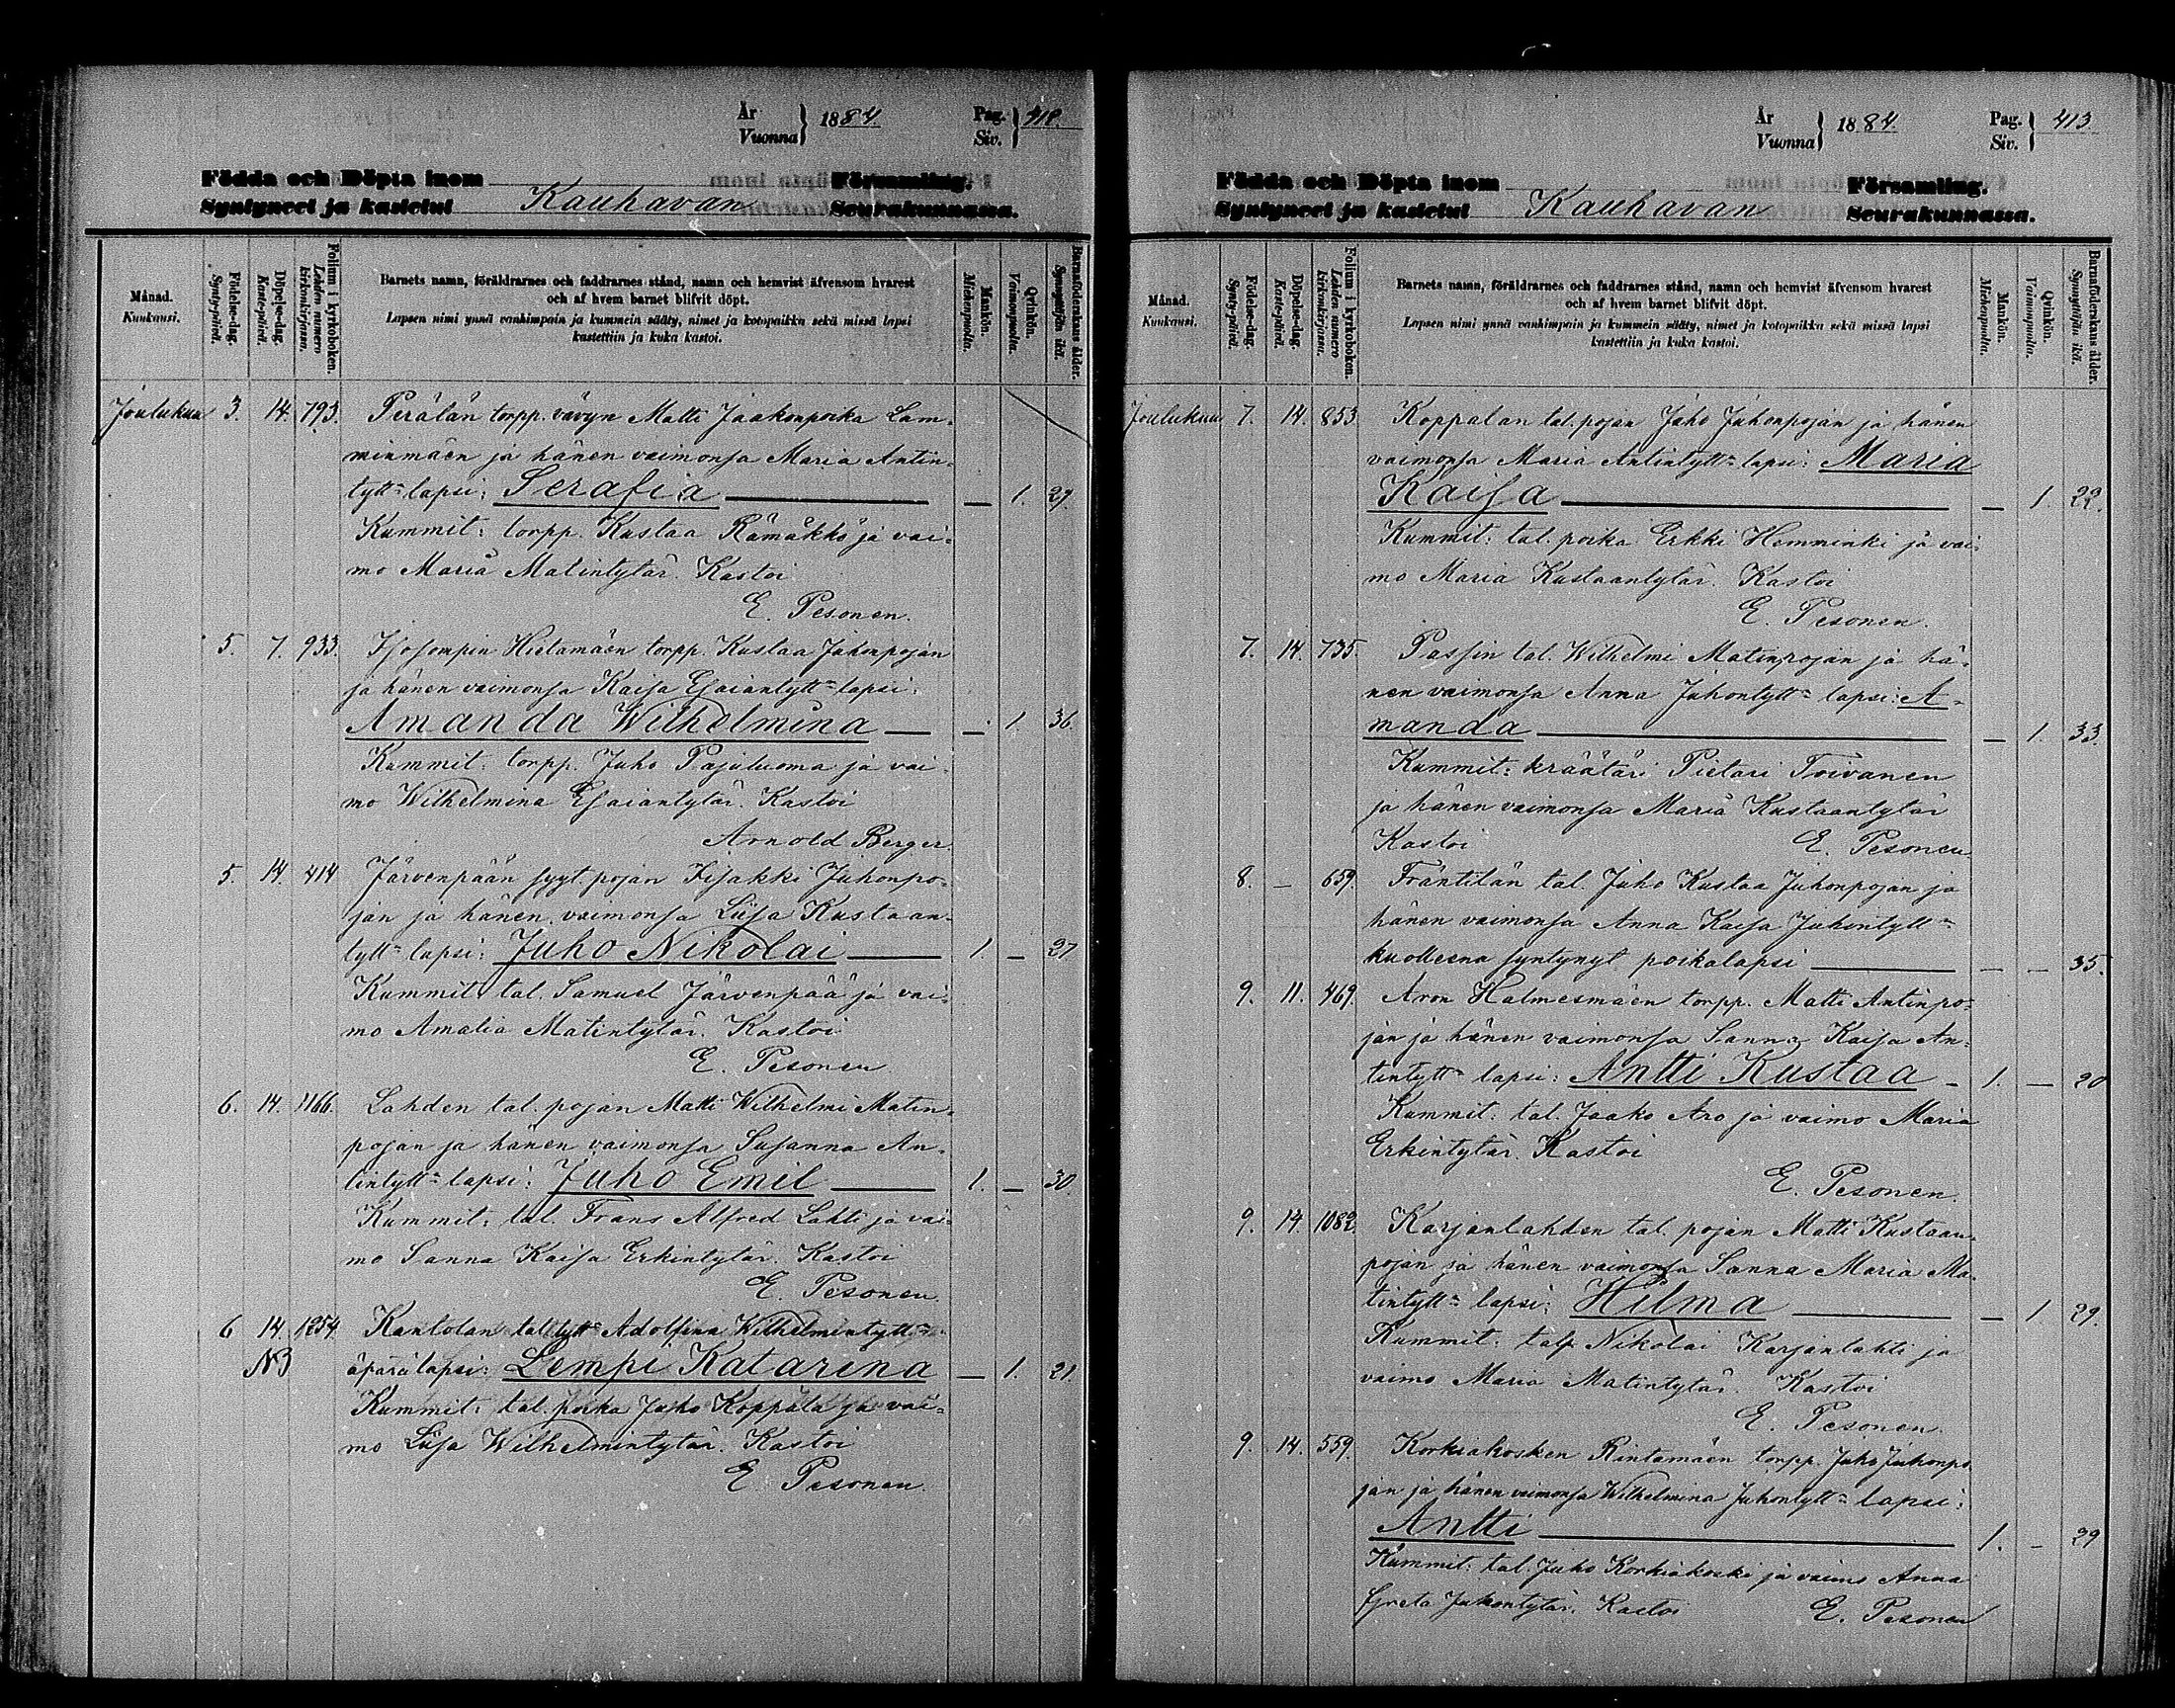 År Vuonna } 1884. Pag. Siv. }
Födda och Döpta inom Församling.
Syntyneet ja kastetut Kauhavan Seurakunnassa.
Månad. Kuukausi.
Födelse-dag. Synty-päivä.
Döpelse-dag. Kaste-päivä.
Folium i kyrkoboken. Lehden numero kirkonkirjassa.
Barnets namn, föräldrarnes och faddrarnes stånd, namn och hemvist äfvensom hvarest
och af hvem barnet blifvit döpt.
Lapsen nimi ynnä vanhimpain ja kummein sääty, nimet ja kotopaikka sekä missä lapsi
kastettiin ja kuka kastoi.
Mankön. Miehenpuolta.
Qvinkön. Vaimonpuolta.
Barnaföderskans ålder. Synnyttäjän ikä.
Joulukuu 3. 14. 793. Perälän torpp. vävyn Matti Jaakonpoika Lam-
minmäen ja hänen vaimonsa Maria Antin-
tytt= lapsi: Serafia — 1. 27.
Kummit: torpp. Kustaa Rämäkkö ja vai-
mo Maria Matintytär. Kastoi
E. Pesonen.
5. 7. 933. Isosompin Hietamäen torpp. Kustaa Juhonpojan
ja hänen vaimonsa Kaisa Esaiantytt= lapsi:
Amanda Wilhelmina — — 1. 36.
Kummit: torpp. Juho Pajuluoma ja vai-
mo Wilhelmina Esaiantytär. Kastoi
Arnold Berger.
5. 14. 414 Järvenpään syyt. pojan Iisakki Juhonpo-
jan ja hänen vaimonsa Liisa Kustaan-
tytt= lapsi: Juho Nikolai — 1. — 27
Kummit tal. Samuel Järvenpää ja vai-
mo Amalia Matintytär. Kastoi
E. Pesonen
6. 14. 1166. Lahden tal. pojan Matti Wilhelmi Matin-
pojan ja hänen vaimonsa Susanna An-
tintytt= lapsi: Juho Emil — 1. — 30.
Kummit: tal. Frans Alfred Lahti ja vai-
mo Sanna Kaisa Erkintytär. Kastoi
E. Pesonen.
6 14. 1254. Kantolan tal tytt= Adolfina Wilhelmintytt=
NB äpärälapsi: Lempi Katarina — 1. 21.
Kummit: tal. poika Juho Koppala ja vai-
mo Liisa Wilhelmintytär. Kastoi
E. Pesonen.
År Vuonna } 1884. Pag. Siv. } 413.
Födda och Döpta inom Församling.
Syntyneet ja kastetut Kauhavan Seurakunnassa.
Månad. Kuukausi.
Födelse-dag. Synty-päivä.
Döpelse-dag. Kaste-päivä.
Folium i kyrkoboken. Lehden numero kirkonkirjassa.
Barnets namn, föräldrarnes och faddrarnes stånd, namn och hemvist äfvensom hvarest
och af hvem barnet blifvit döpt.
Lapsen nimi ynnä vanhimpain ja kummein sääty, nimet ja kotopaikka sekä missä lapsi
kastettiin ja kuka kastoi.
Mankön. Miehenpuolta.
Qvinkön. Vaimonpuolta.
Barnaföderskans ålder. Synnyttäjän ikä.
Joulukuu 7. 14. 853. Koppalan tal. pojan Juho Juhonpojan ja hänen
vaimonsa Maria Antintytt= lapsi: Maria
Kaisa — — 1. 22.
Kummit: tal. poika Erkki Hemminki ja vai-
mo Maria Kustaantytär. Kastoi
E. Pesonen.
7. 14. 735. Passin tal. Wilhelmi Matinpojan ja hä-
nen vaimonsa Anna Juhontytt= lapsi: A-
manda — — 1. 33.
Kummit: kräätäri Pietari Toivanen
ja hänen vaimonsa Maria Kustaantytär
Kastoi E. Pesonen.
8. — 659. Fräntilän tal. Juho Kustaa Juhonpojan ja
hänen vaimonsa Anna Kaisa Juhontytt=
kuolleena syntynyt poikalapsi — — — 35.
9. 11. 469. Aron Halmesmäen torpp. Matti Antinpo-
jan ja hänen vaimonsa Sanna Kaisa An-
tintytt= lapsi: Antti Kustaa — 1. — 20
Kummit: tal. Jaako Aro ja vaimo Maria
Erkintytär. Kastoi
E. Pesonen.
9. 14. 1082. Karjanlahden tal. pojan Matti Kustaan-
pojan ja hänen vaimonsa Sanna Maria Ma-
tintytt= lapsi: Hilma — — 1 29.
Kummit: talp Nikolai Karjanlahti ja
vaimo Maria Matintytär. Kastoi
E. Pesonen.
9. 14. 559. Korkiakosken Rintamäen torpp. Juho Juhonpo-
jan ja hänen vaimonsa Wilhelmina Juhontytt= lapsi:
Antti — 1. — 29
Kummit: tal. Juho Korkiakoski ja vaimo Anna
Greta Juhontytär. Kastoi E. Pesonen